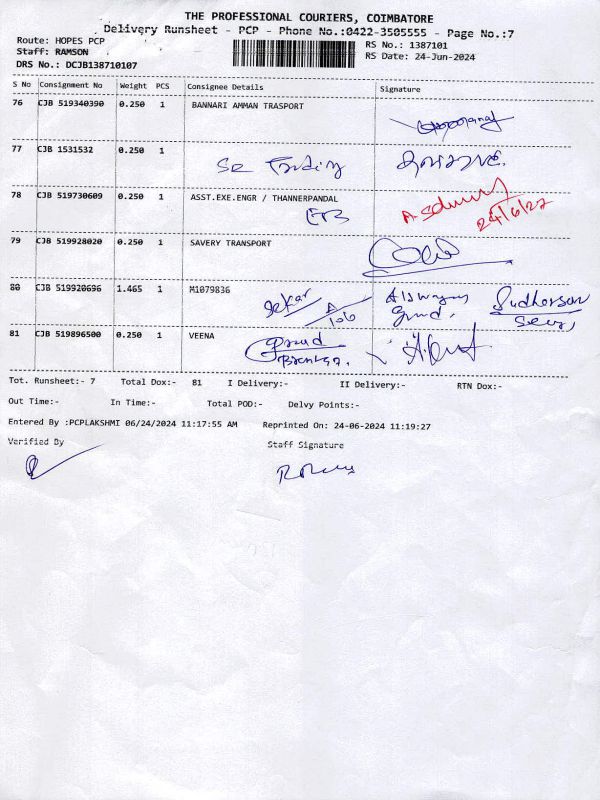 THE PROFESSIONAL COURIERS, COIMBATORE
Delivery Runsheet - PCP - Phone No.:0422-3505555 - Page No.:7
Route: HOPES PCP
RS No.: 1387101
Staff: RAMSON
RS Date: 24-Jun-2024
DRS No.: DCJB138710107
S No Consignment No Weight PCS Consignee Details Signature
76 CJB 519340390 0.250 1 BANNARI AMMAN TRASPORT
77 CJB 1531532 0.250 1
Trading
78 CJB 519730609 0.250 1 ASST.EXE.ENGR / THANNERPANDAL
EB
79 CJB 519928020 0.250 1 SAVERY TRANSPORT
80 CJB 519920696 1.465 1 M1079836
Sekar A/106
81 CJB 519896500 0.250 1 VEENA
Tot. Runsheet:- 7 Total Dox:- 81 I Delivery:- II Delivery:- RTN Dox:-
Out Time:- In Time:- Total POD:- Delvy Points:-
Entered By :PCPLAKSHMI 06/24/2024 11:17:55 AM Reprinted On: 24-06-2024 11:19:27
Verified By Staff Signature